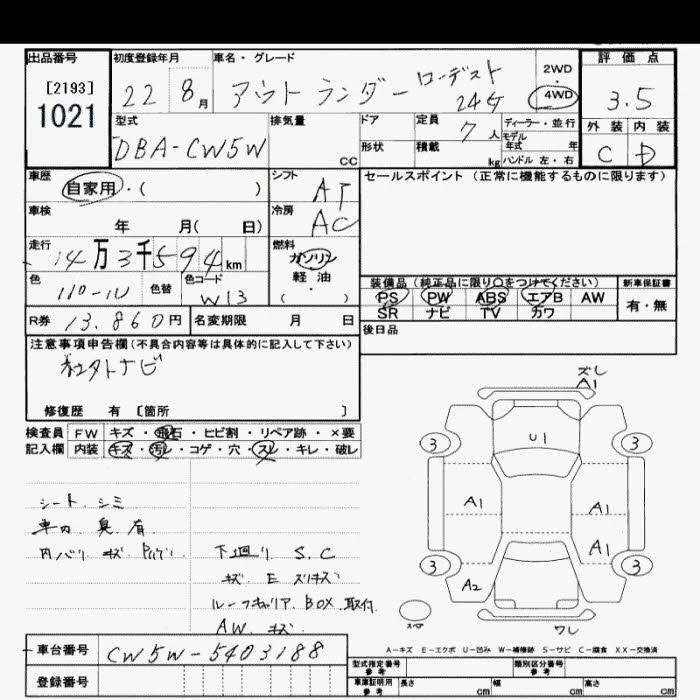 出品番号
[2193]
1021
初度登録年月
22 8月
車名・グレード
アウトランダー ローデスト
24G
2WD
4WD
評価点
3.5
外装 内装
C D
型式
DBA-CW5W
排気量
CC
ドア
形状
定員
7人
積載
kg
ディーラー・並行
モデル
年式 年
ハンドル 左・右
車歴
自家用・( )
シフト
AT
セールスポイント(正常に機能するものに限ります)
車検
年 月( 日)
冷房
AC
走行
14万3千594km
燃料
ガソリン
軽油
( ・ )
色
色替
色コード
W13
装備品(純正品に限り○をつけてください)
PS PW ABS エアB AW
SR ナビ TV カワ
新車保証書
有・無
R券 13.860円
名変期限 月 日
後日品
注意事項申告欄(不具合内容等は具体的に記入して下さい)
社外ナビ
修復歴 有 [箇所 ]
検査員
記入欄
FW キズ・飛石・ヒビ割・リペア跡・×要
内装 キズ・汚レ・コゲ・穴・スレ・キレ・破レ
シート シミ
車内 臭 有
内バリ キズ
下廻り S.C
ルーフキャリア BOX 取付
AW キズ
ズレ
A1
3
U1
3
A1
A1
A1
3
A2
3
スペア
ワレ
A-キズ E-エクボ U-凹み W-補修跡 S-サビ C-腐食 XX-交換済
車台番号
CW5W-5403188
登録番号
型式指定番号
参考
類別区分番号
参考
車庫証明用
参考
長さ cm
幅 cm
高さ cm